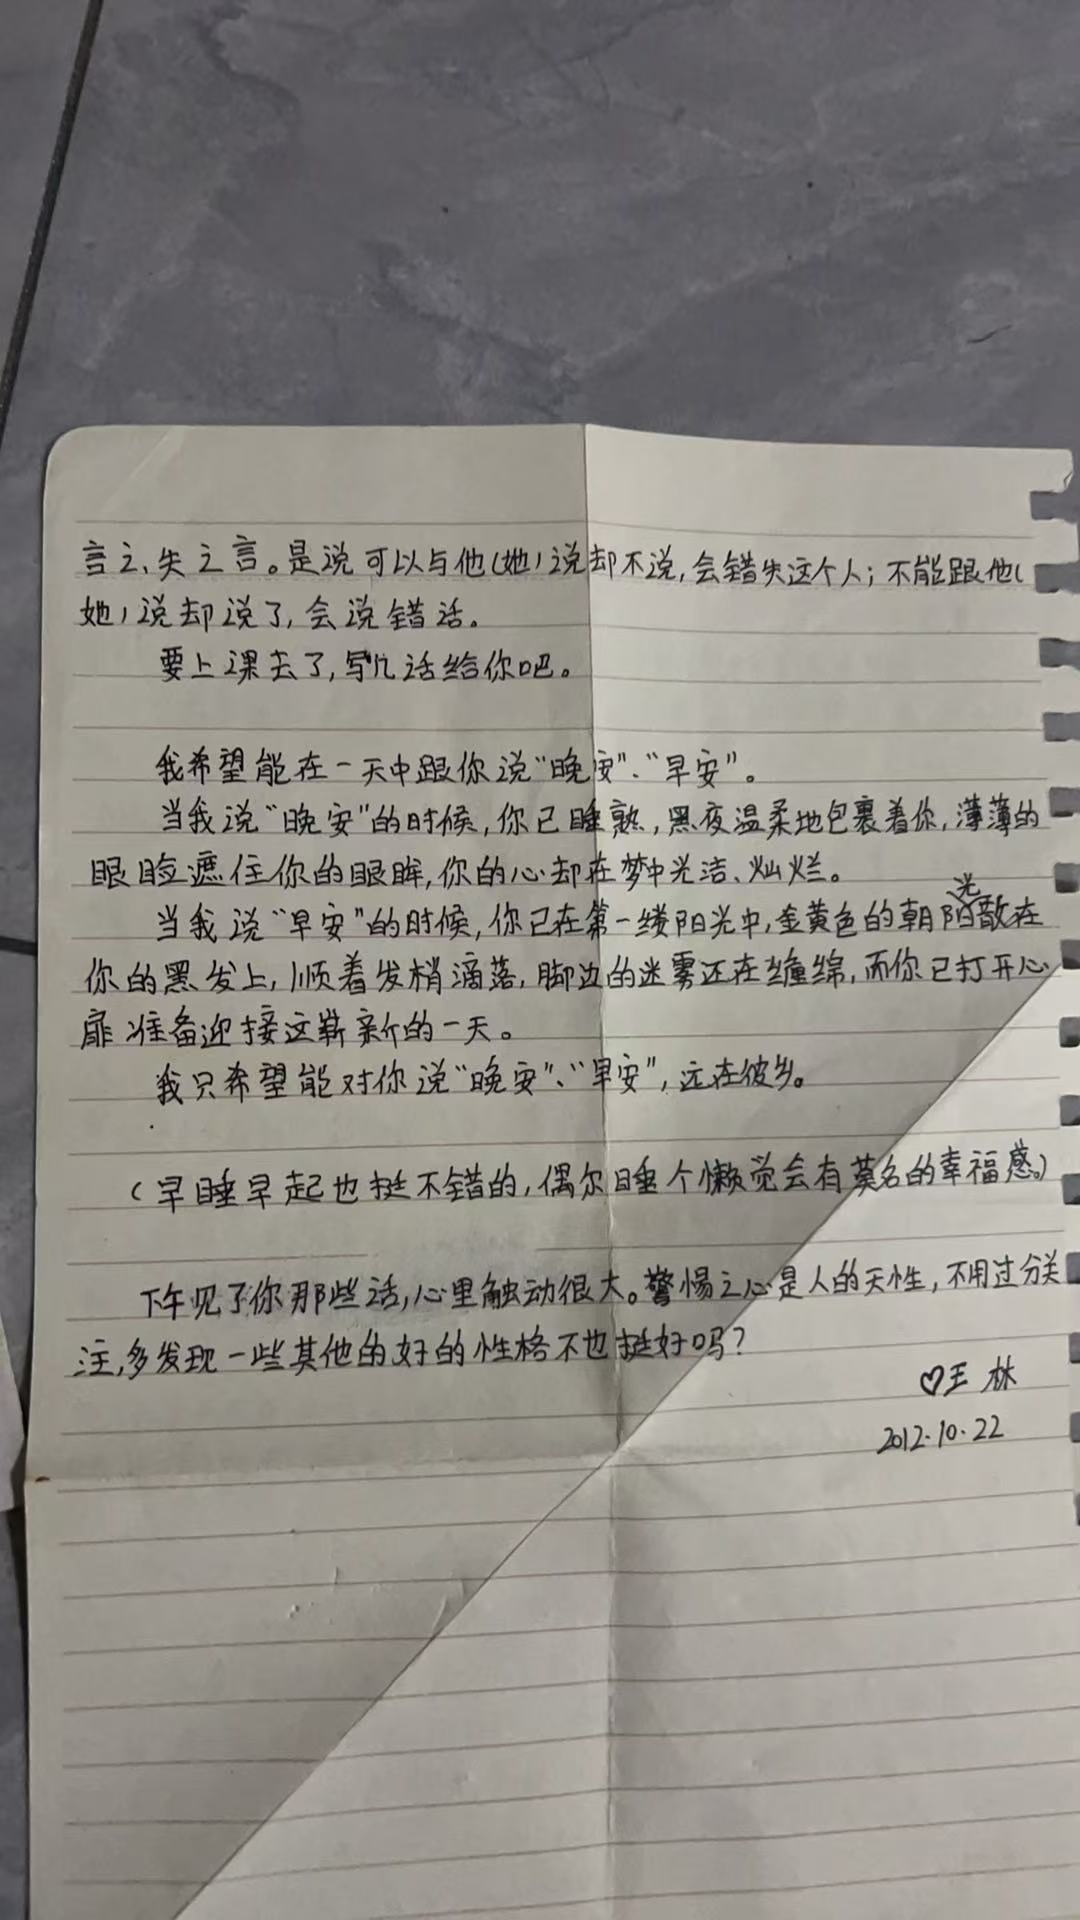 言之、失之言。是说可以与他(她)说却不说,会错失这个人;不能跟他(
她)说却说了,会说错话。
要上课去了,写几话给你吧。
我希望能在一天中跟你说“晚安”、“早安”。
当我说“晚安”的时候,你已睡熟,黑夜温柔地包裹着你,薄薄的
眼睑遮住你的眼眸,你的心却在梦中光洁、灿烂。
当我说“早安”的时候,你已在第一缕阳光中,金黄色的朝阳光散在
你的黑发上,顺着发梢滴落,脚边的迷雾还在缠绵,而你已打开心
扉准备迎接这崭新的一天。
我只希望能对你说“晚安”、“早安”,远在彼乡。
(早睡早起也挺不错的,偶尔睡个懒觉会有莫名的幸福感。)
下午见了你那些话,心里触动很大。警惕之心是人的天性,不用过分关
注,多发现一些其他的好的性格不也挺好吗?
♡王林
2012.10.22